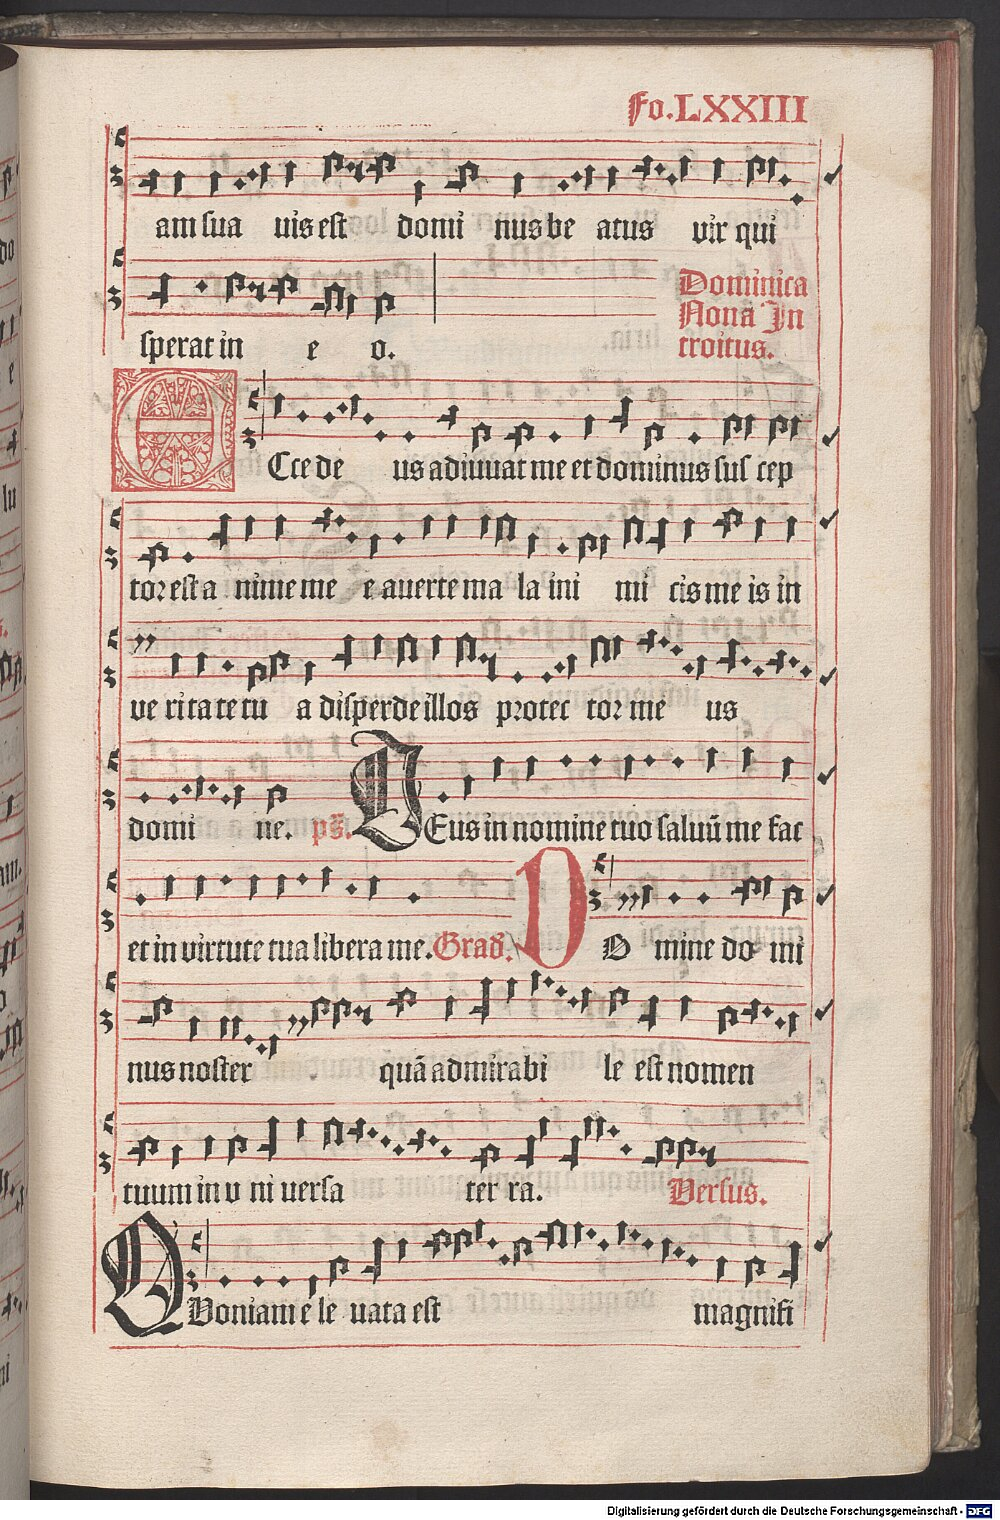 Fo. LXXIII
am sua uis est domi nus be atus vir qui
sperat in e o.
Dominica
Nona In
troitus.
Ecce de us adiuuat me et dominus sus cep
tor est a nime me e auerte ma la ini mi cis me is in
ve ritate tu a disperde illos protec tor me us
domi ne. ps. Deus in nomine tuo saluū me fac
et in virtute tua libera me. Grad. DO mine do mi
nus noster quā admirabi le est nomen
tuum in v ni uersa ter ra. Versus.
Quoniam e le uata est magnifi
Digitalisierung gefördert durch die Deutsche Forschungsgemeinschaft - DFG